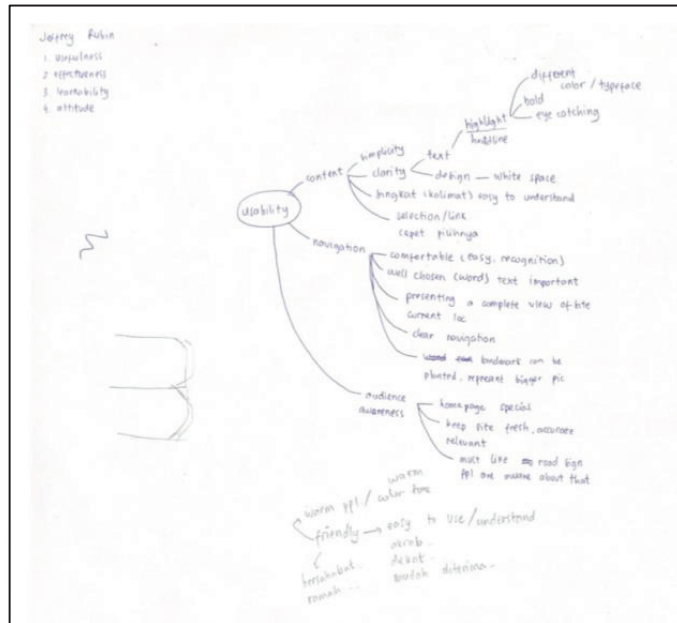 Jeffrey Rubin
1. usefulness
2. effectiveness
3. learnability
4. attitude
usability
content
simplicity
clarity
text
highlight
headline
different
color / typeface
bold
eye catching
design — white space
singkat (kalimat) easy to understand
selection / link
cepet pilihnya
navigation
comfortable (easy, recognition)
well chosen (word) text important
presenting a complete view of site
current loc
clear navigation
landmark can be
planted, represent bigger pic
audience
awareness
homepage special
keep site fresh, accurate
relevant
must like road sign
ppl are aware about that
warm ppl /
warm
color tone
friendly → easy to use / understand
akrab..
bersahabat..
dekat..
ramah...
mudah diterima..